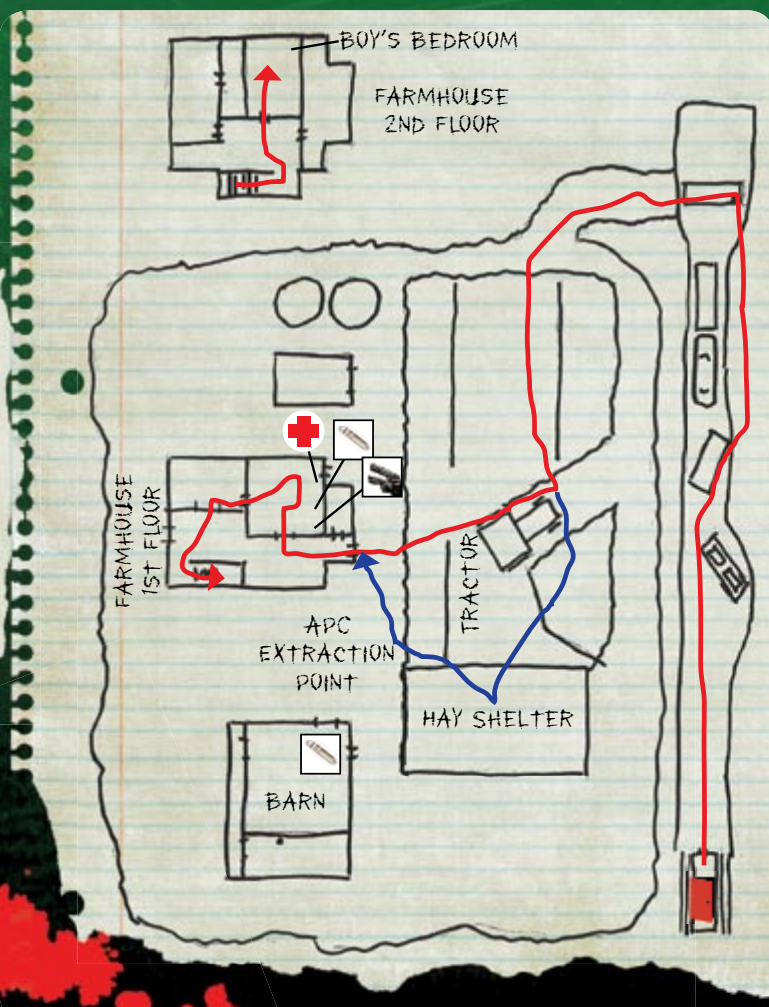 BOY'S BEDROOM
FARMHOUSE
2ND FLOOR
FARMHOUSE
1ST FLOOR
TRACTOR
APC
EXTRACTION
POINT
HAY SHELTER
BARN